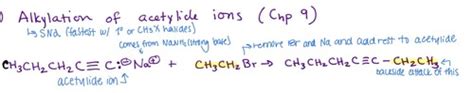 Alkylation of acetylide ions (Chp 9)
↳ SN2 (fastest w/ 1° or CH3X halides)
comes from NaNH2 (strong base)
remove Br and Na and add rest to acetylide
CH3CH2CH2C≡C:⊖Na⊕ + CH3CH2Br → CH3CH2CH2C≡C–CH2CH3
acetylide ion
backside attack of this